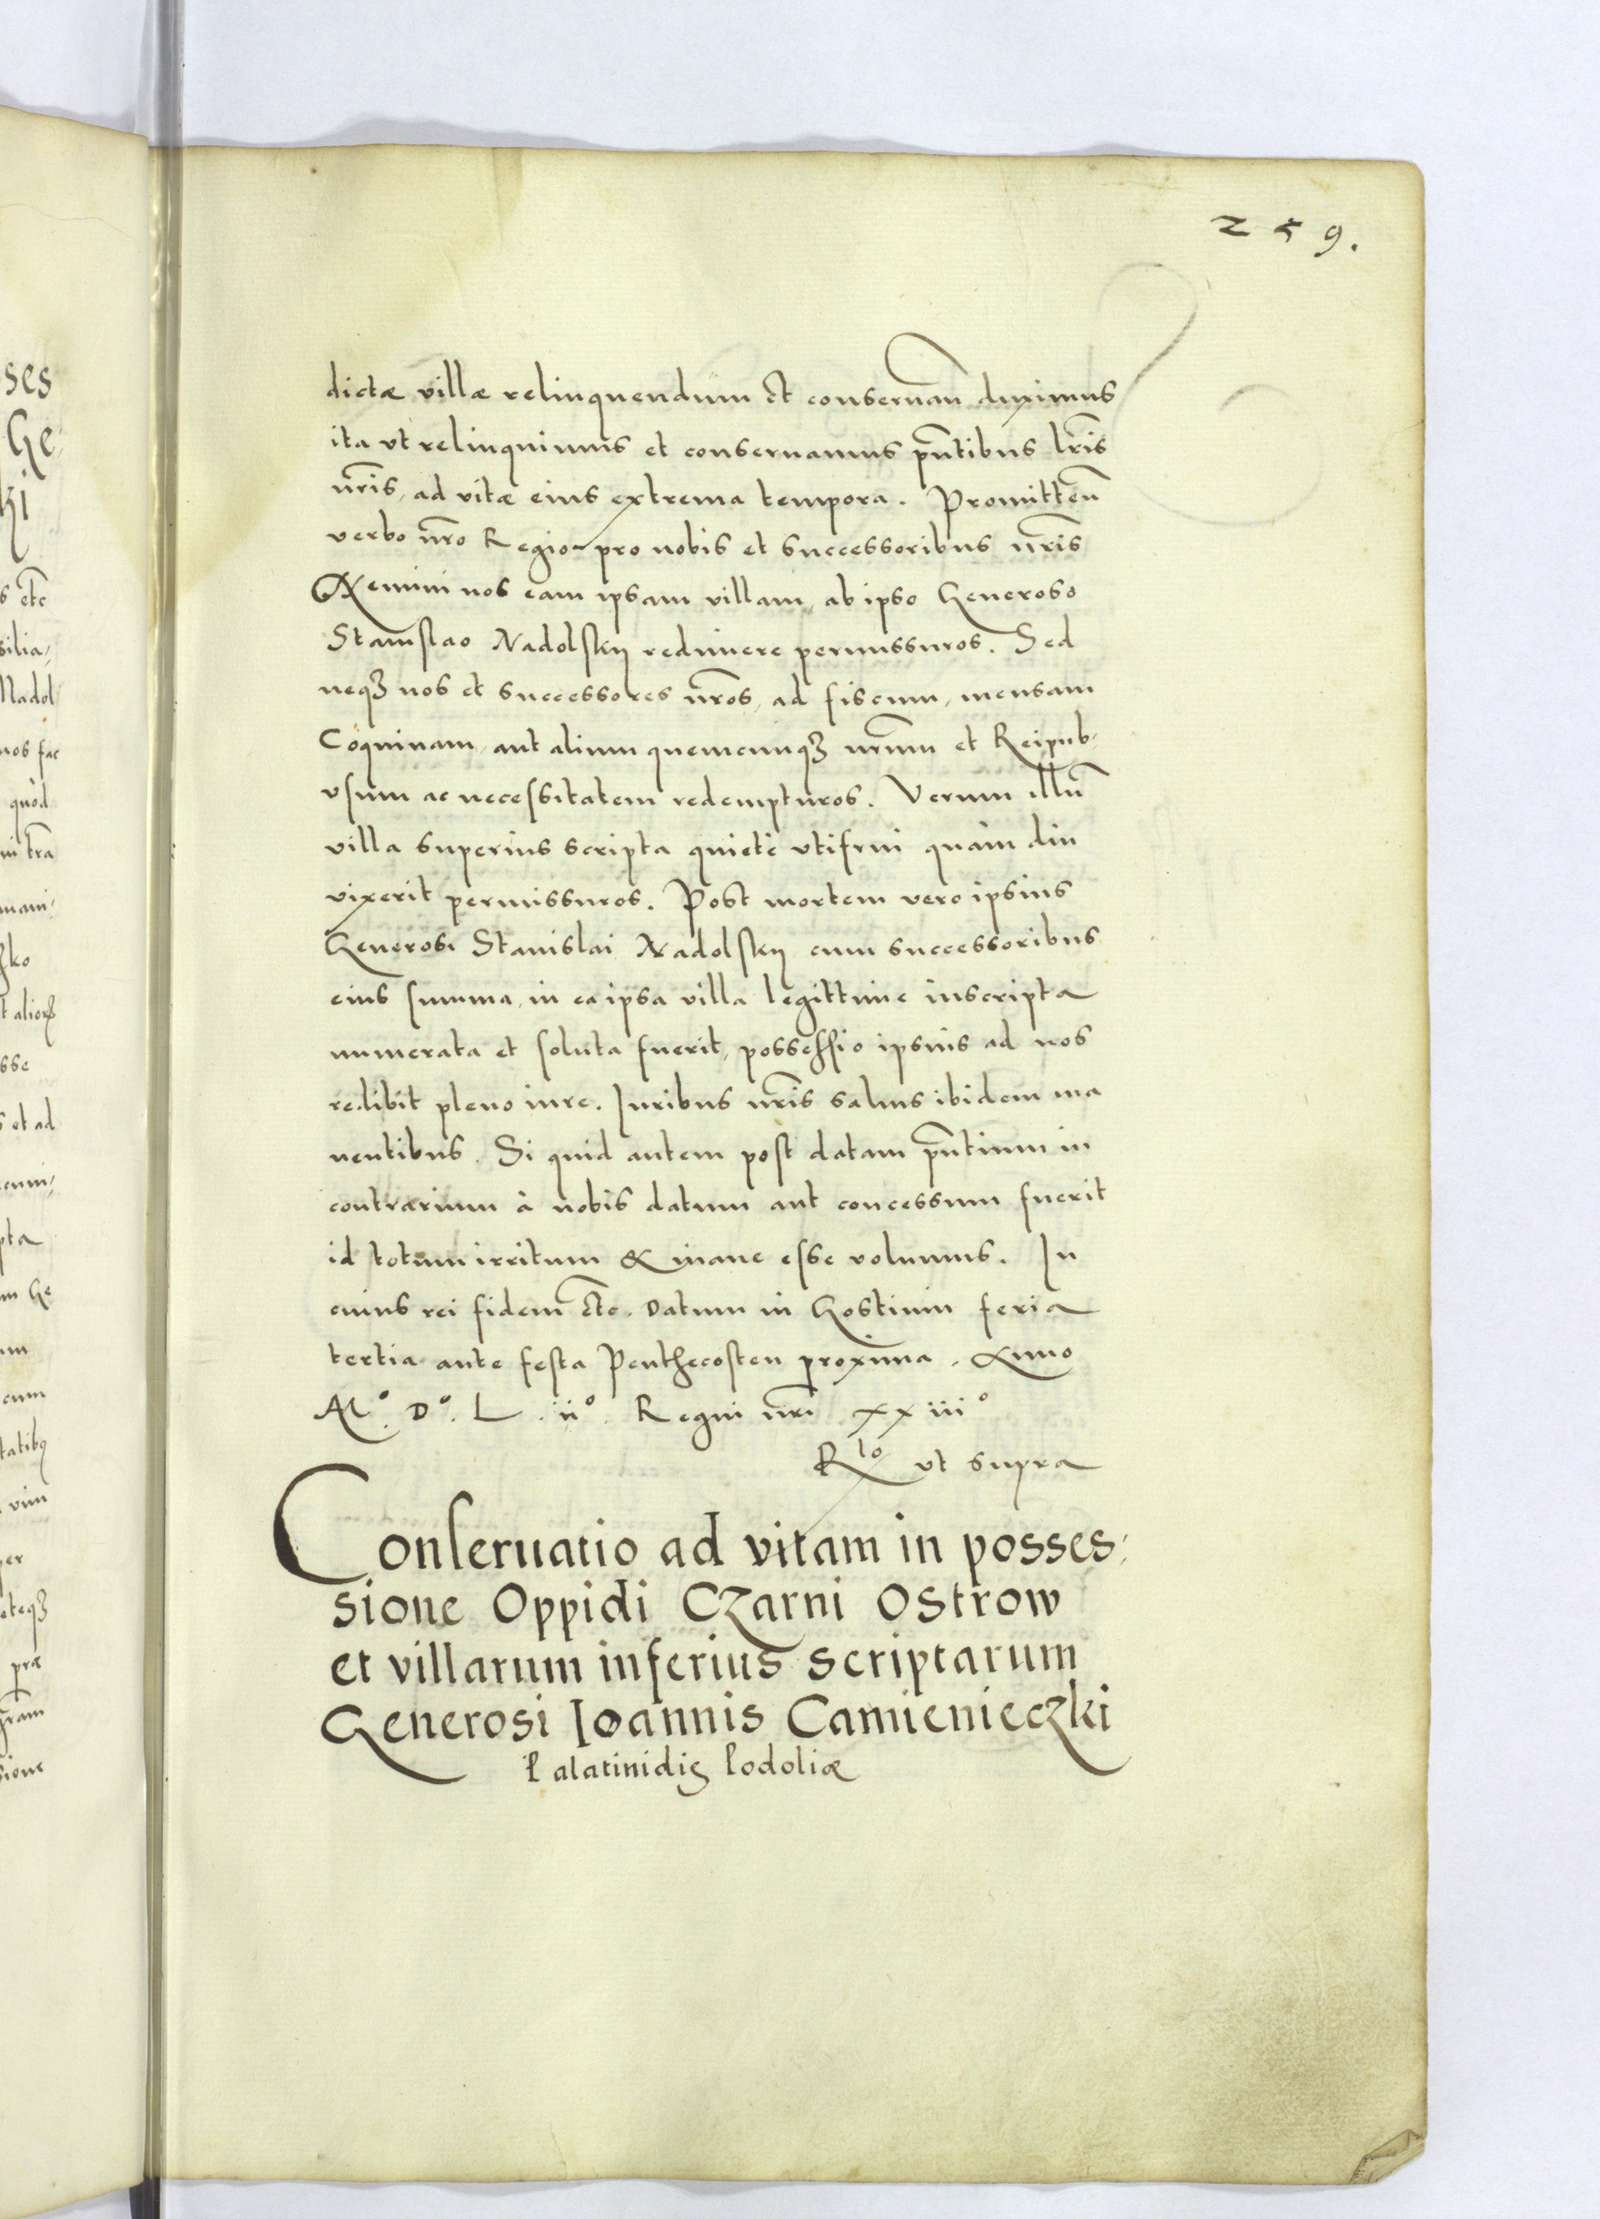 259.
dictæ villæ relinquendum et conseruañ duximus
ita vt relinquimus et conseruamus pñtibus lr̃is
nr̃is, ad vitæ eius extrema tempora. Promitteñ
verbo nr̃o Regio pro nobis et successoribus nr̃is
Nemini nos eam ipsam villam, ab ipso Generoso
Stanislao Nadolskij redimere permissuros. Sed
neqꝫ nos et successores nr̃os, ad fiscum, mensam
Coquinam, aut alium quemcunqꝫ nr̃um et Reipub.
vsum ac necessitatem redempturos. Verum illũ
villa superius scripta quietè vtifrui quàm diu
vixerit permissuros. Post mortem vero ipsius
Generosi Stanislai Nadolskij cum successoribus
eius summa, in ea ipsa villa legittime inscripta
numerata et soluta fuerit, possessio ipsius ad nos
redibit pleno iure. Iuribus nr̃is saluis ibidem ma
nentibus. Si quid autem post datam pñtium in
contrarium à nobis datum aut concessum fuerit
id totum irritum & inane esse volumus. In
cuius rei fidem etc̃. Datum in Gostinin feria
tertia ante festa Penthecosten proxima. Anno
Mº. Dº. L. iiº. Regni nr̃i xxiiiº
Rᵗᵒ vt supra
Conseruatio ad vitam in posses,
sione Oppidi Czarni Ostrow
et villarum inferius scriptarum
Generosi Ioannis Camienieczki
Palatinidis Podoliæ
ses
Ge,
ki
s etc̃
silia,
Nadol
nos fac
quòd
in tr̃a
mani,
zko
t aliorꝫ
sse
s et ad
cum,
pta
m Ge
um
cum
tatibꝫ
vim
per
eteqꝫ
præ
sione